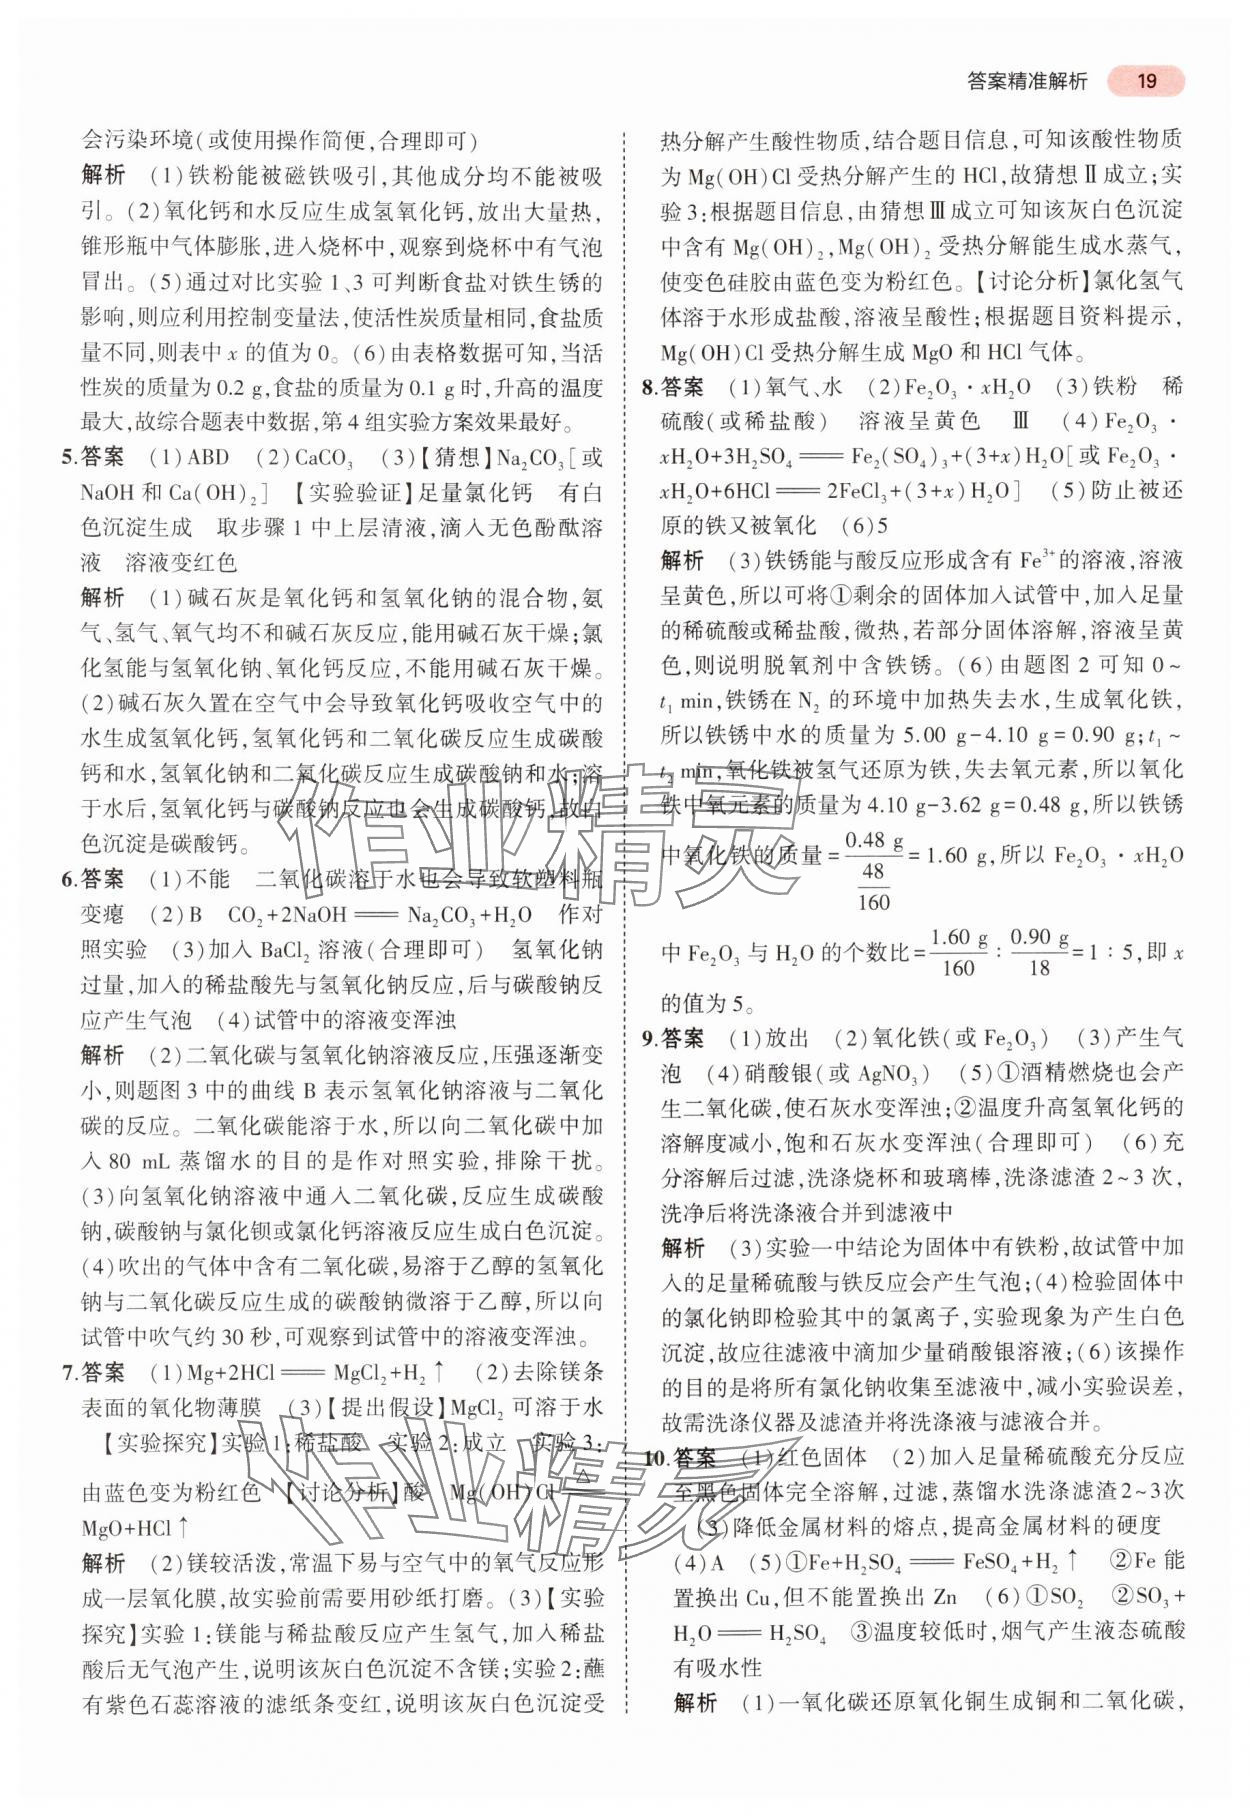 答案精准解析 19
会污染环境(或使用操作简便,合理即可)
解析 (1)铁粉能被磁铁吸引,其他成分均不能被吸
引。(2)氧化钙和水反应生成氢氧化钙,放出大量热,
锥形瓶中气体膨胀,进入烧杯中,观察到烧杯中有气泡
冒出。(5)通过对比实验1、3可判断食盐对铁生锈的
影响,则应利用控制变量法,使活性炭质量相同,食盐质
量不同,则表中 x 的值为0。(6)由表格数据可知,当活
性炭的质量为0.2 g,食盐的质量为0.1 g时,升高的温度
最大,故综合题表中数据,第4组实验方案效果最好。
5.答案 (1)ABD (2)CaCO₃ (3)【猜想】Na₂CO₃[或
NaOH和Ca(OH)₂] 【实验验证】足量氯化钙 有白
色沉淀生成 取步骤1中上层清液,滴入无色酚酞溶
液 溶液变红色
解析 (1)碱石灰是氧化钙和氢氧化钠的混合物,氨
气、氢气、氧气均不和碱石灰反应,能用碱石灰干燥;氯
化氢能与氢氧化钠、氧化钙反应,不能用碱石灰干燥。
(2)碱石灰久置在空气中会导致氧化钙吸收空气中的
水生成氢氧化钙,氢氧化钙和二氧化碳反应生成碳酸
钙和水,氢氧化钠和二氧化碳反应生成碳酸钠和水;溶
于水后,氢氧化钙与碳酸钠反应也会生成碳酸钙,故白
色沉淀是碳酸钙。
6.答案 (1)不能 二氧化碳溶于水也会导致软塑料瓶
变瘪 (2)B CO₂+2NaOH══Na₂CO₃+H₂O 作对
照实验 (3)加入BaCl₂溶液(合理即可) 氢氧化钠
过量,加入的稀盐酸先与氢氧化钠反应,后与碳酸钠反
应产生气泡 (4)试管中的溶液变浑浊
解析 (2)二氧化碳与氢氧化钠溶液反应,压强逐渐变
小,则题图3中的曲线B表示氢氧化钠溶液与二氧化
碳的反应。二氧化碳能溶于水,所以向二氧化碳中加
入80 mL蒸馏水的目的是作对照实验,排除干扰。
(3)向氢氧化钠溶液中通入二氧化碳,反应生成碳酸
钠,碳酸钠与氯化钡或氯化钙溶液反应生成白色沉淀。
(4)吹出的气体中含有二氧化碳,易溶于乙醇的氢氧化
钠与二氧化碳反应生成的碳酸钠微溶于乙醇,所以向
试管中吹气约30秒,可观察到试管中的溶液变浑浊。
7.答案 (1)Mg+2HCl══MgCl₂+H₂↑ (2)去除镁条
表面的氧化物薄膜 (3)【提出假设】MgCl₂可溶于水
【实验探究】实验1:稀盐酸 实验2:成立 实验3:
由蓝色变为粉红色 【讨论分析】酸 Mg(OH)Cl═△═
MgO+HCl↑
解析 (2)镁较活泼,常温下易与空气中的氧气反应形
成一层氧化膜,故实验前需要用砂纸打磨。(3)【实验
探究】实验1:镁能与稀盐酸反应产生氢气,加入稀盐
酸后无气泡产生,说明该灰白色沉淀不含镁;实验2:蘸
有紫色石蕊溶液的滤纸条变红,说明该灰白色沉淀受
热分解产生酸性物质,结合题目信息,可知该酸性物质
为Mg(OH)Cl受热分解产生的HCl,故猜想Ⅱ成立;实
验3:根据题目信息,由猜想Ⅲ成立可知该灰白色沉淀
中含有Mg(OH)₂,Mg(OH)₂受热分解能生成水蒸气,
使变色硅胶由蓝色变为粉红色。【讨论分析】氯化氢气
体溶于水形成盐酸,溶液呈酸性;根据题目资料提示,
Mg(OH)Cl受热分解生成MgO和HCl气体。
8.答案 (1)氧气、水 (2)Fe₂O₃·xH₂O (3)铁粉 稀
硫酸(或稀盐酸) 溶液呈黄色 Ⅲ (4)Fe₂O₃·
xH₂O+3H₂SO₄══Fe₂(SO₄)₃+(3+x)H₂O[或Fe₂O₃·
xH₂O+6HCl══2FeCl₃+(3+x)H₂O] (5)防止被还
原的铁又被氧化 (6)5
解析 (3)铁锈能与酸反应形成含有Fe³⁺的溶液,溶液
呈黄色,所以可将①剩余的固体加入试管中,加入足量
的稀硫酸或稀盐酸,微热,若部分固体溶解,溶液呈黄
色,则说明脱氧剂中含铁锈。(6)由题图2可知0~
t₁ min,铁锈在N₂的环境中加热失去水,生成氧化铁,
所以铁锈中水的质量为5.00 g-4.10 g=0.90 g;t₁~
t₂ min,氧化铁被氢气还原为铁,失去氧元素,所以氧化
铁中氧元素的质量为4.10 g-3.62 g=0.48 g,所以铁锈
中氧化铁的质量=0.48 g/(48/160)=1.60 g,所以Fe₂O₃·xH₂O
中Fe₂O₃与H₂O的个数比=1.60 g/160:0.90 g/18=1:5,即x
的值为5。
9.答案 (1)放出 (2)氧化铁(或Fe₂O₃) (3)产生气
泡 (4)硝酸银(或AgNO₃) (5)①酒精燃烧也会产
生二氧化碳,使石灰水变浑浊;②温度升高氢氧化钙的
溶解度减小,饱和石灰水变浑浊(合理即可) (6)充
分溶解后过滤,洗涤烧杯和玻璃棒,洗涤滤渣2~3次,
洗净后将洗涤液合并到滤液中
解析 (3)实验一中结论为固体中有铁粉,故试管中加
入的足量稀硫酸与铁反应会产生气泡;(4)检验固体中
的氯化钠即检验其中的氯离子,实验现象为产生白色
沉淀,故应往滤液中滴加少量硝酸银溶液;(6)该操作
的目的是将所有氯化钠收集至滤液中,减小实验误差,
故需洗涤仪器及滤渣并将洗涤液与滤液合并。
10.答案 (1)红色固体 (2)加入足量稀硫酸充分反应
至黑色固体完全溶解,过滤,蒸馏水洗涤滤渣2~3次
(3)降低金属材料的熔点,提高金属材料的硬度
(4)A (5)①Fe+H₂SO₄══FeSO₄+H₂↑ ②Fe能
置换出Cu,但不能置换出Zn (6)①SO₂ ②SO₃+
H₂O══H₂SO₄ ③温度较低时,烟气产生液态硫酸
有吸水性
解析 (1)一氧化碳还原氧化铜生成铜和二氧化碳,
作业精灵
作业精灵